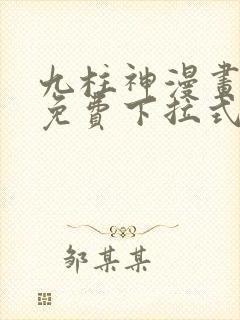 九柱神漫畫
免費下拉式
邹某某